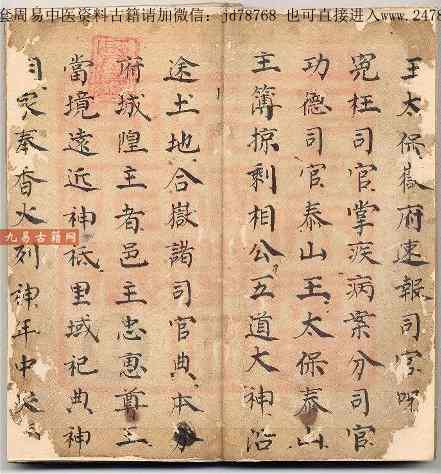 套周易中医资料古籍请加微信：jd78768 也可直接进入www.247
王太保嶽府速報司官
寃枉司官掌疾病案分司官
功德司官泰山王太保泰山
主簿掠剩相公五道大神沿
途土地合嶽諸司官典本
府城隍主者邑主忠惠尊王
當境遠近神祗里域祀典神
奉香火列神年中
九易古籍网